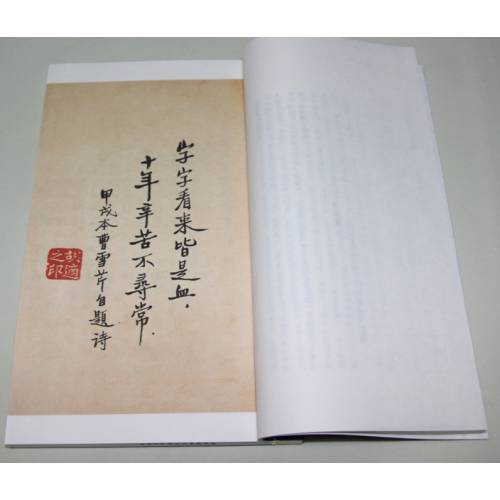 字字看来皆是血.
十年辛苦不尋常.
甲戌本曹雪芹自題诗
胡適之印